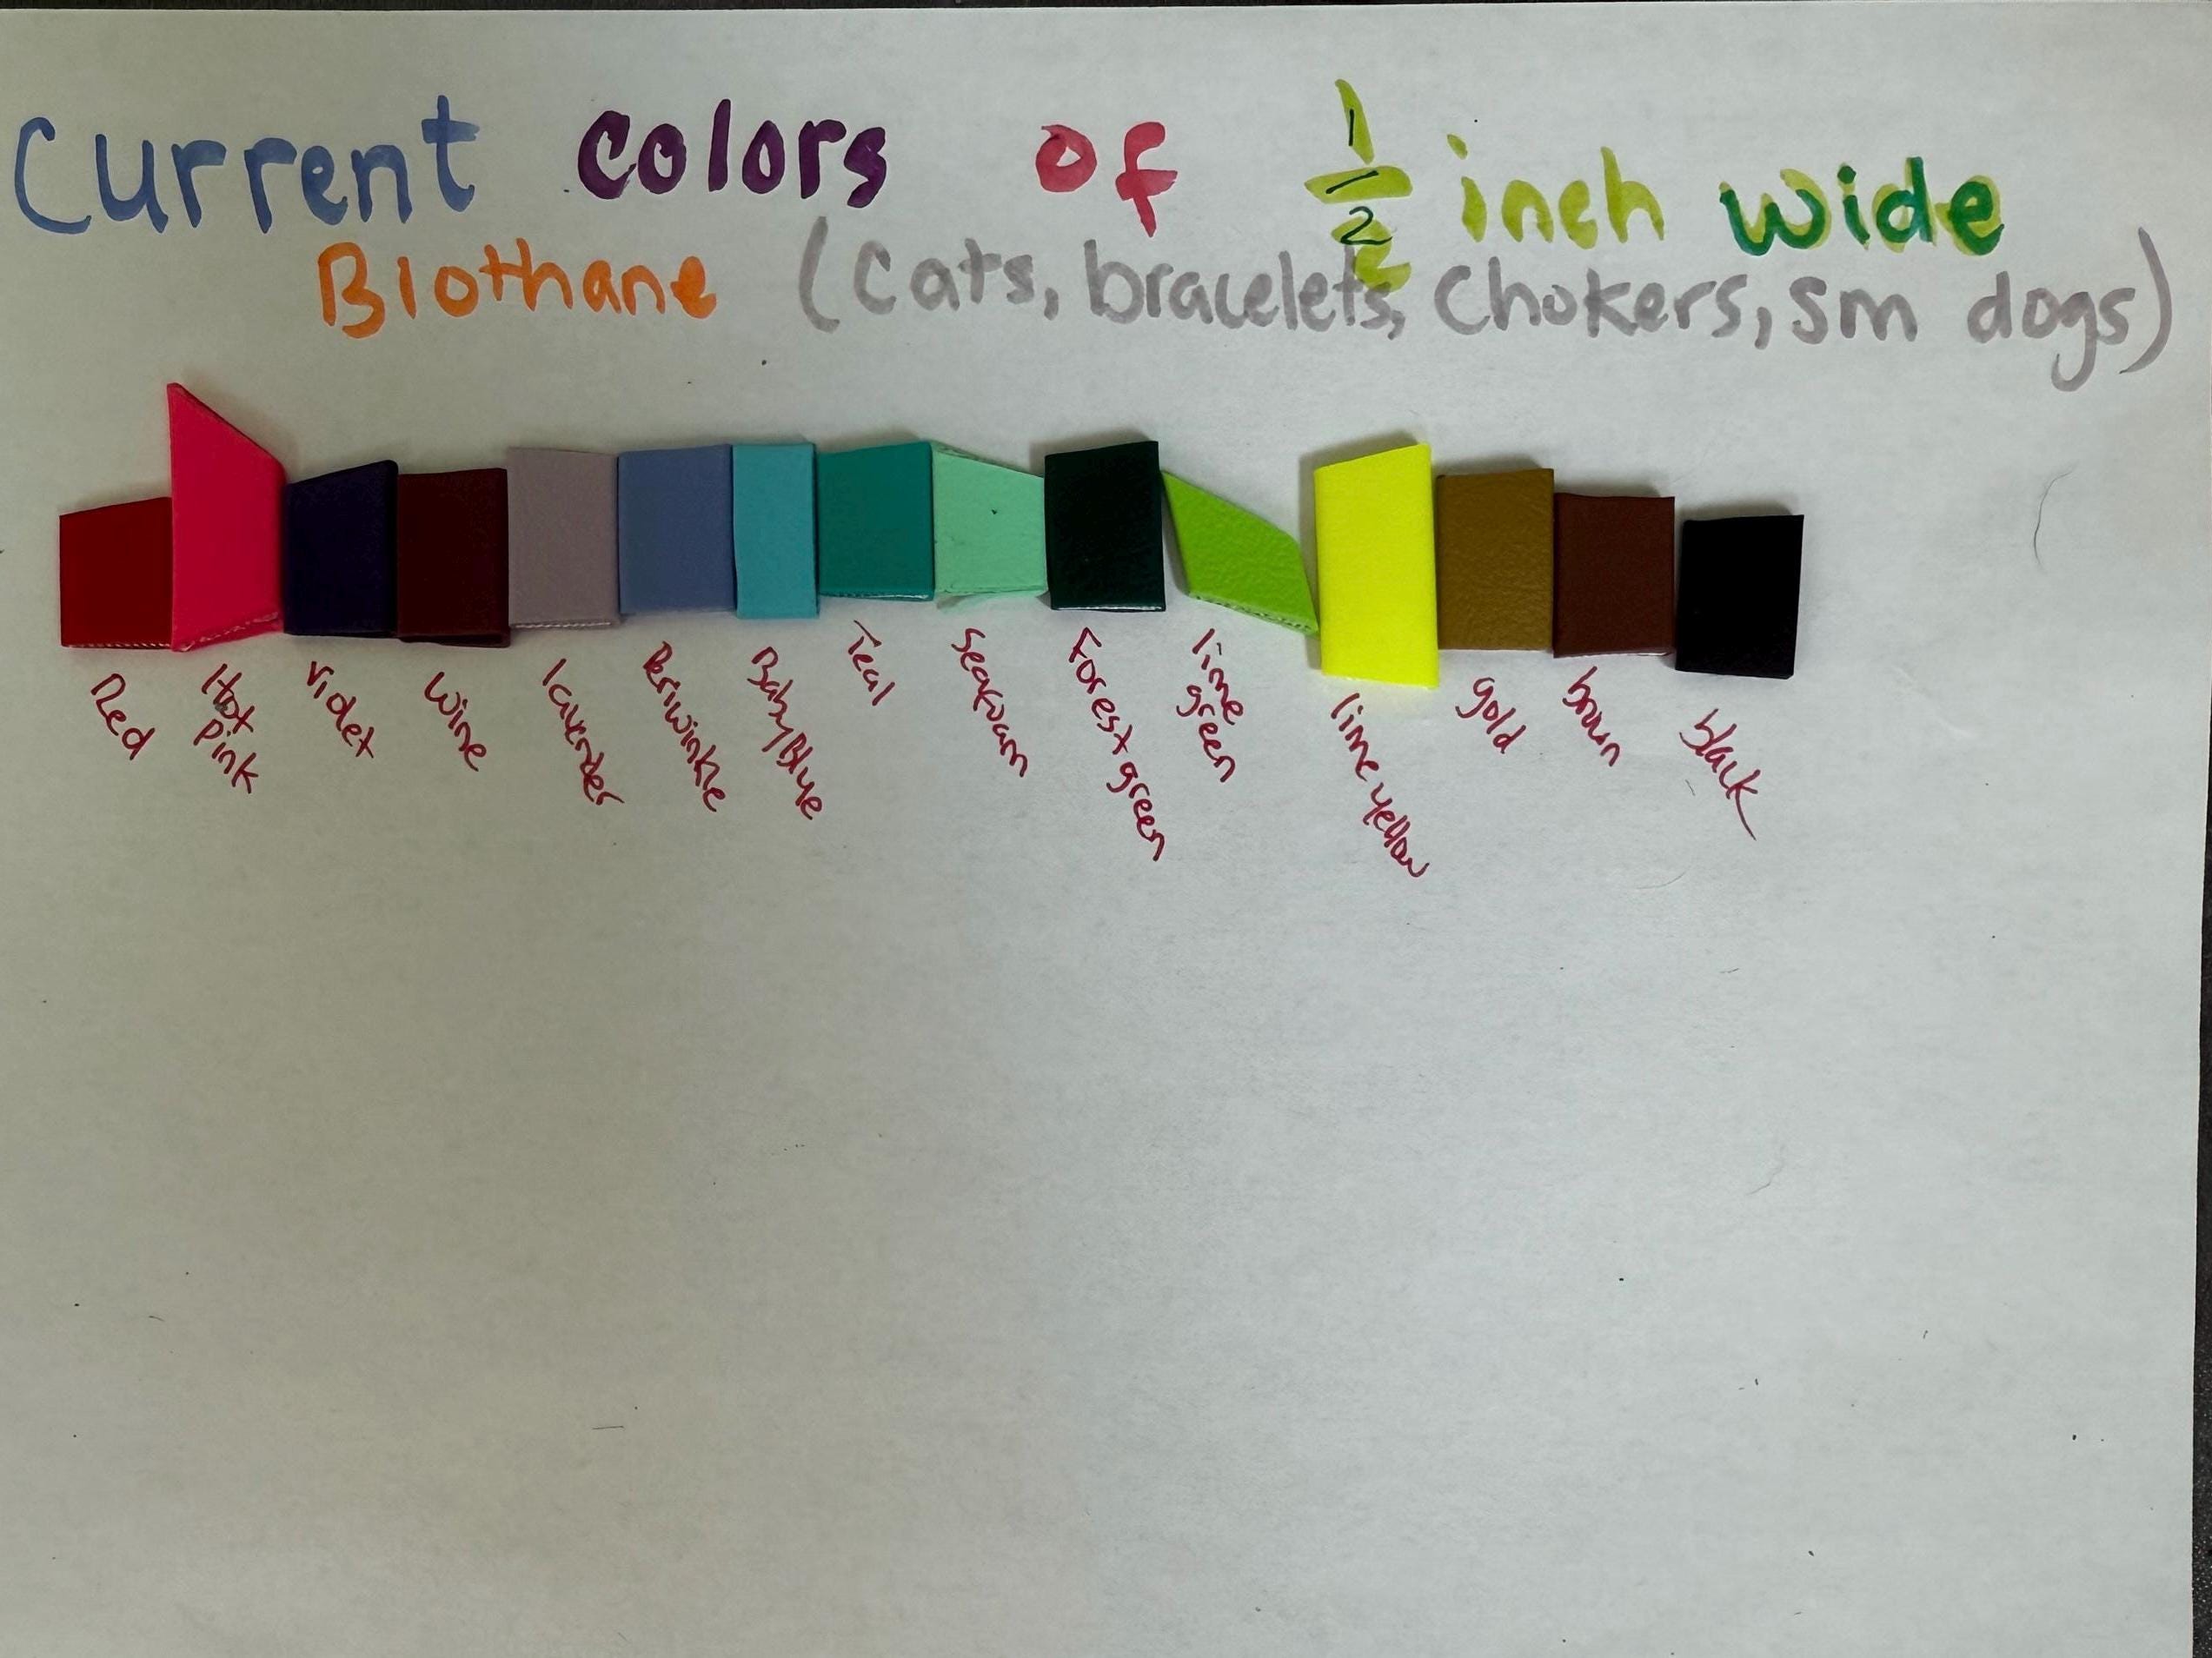 Current colors of 1/2 inch wide
Biothane (Cats, bracelets, Chokers, sm dogs)
Red
Hot
pink
violet
wine
lavender
Periwinkle
Baby Blue
Teal
seafoam
Forest green
lime
green
lime yellow
gold
brown
black